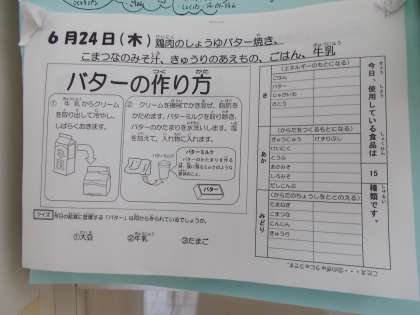 6月24日(木) 鶏肉のしょうゆバター焼き、
こまつなのみそ汁、きゅうりのあえもの、ごはん、牛乳
バターの作り方
① 牛乳からクリーム
を取り出して冷やし、
しばらくおきます。
② クリームを機械でかき混ぜ、脂肪を
かためます。バターミルクを取り除き、
バターのかたまりを水洗いします。塩
を加えて、入れ物に入れます。
バターミルク
バター
クイズ 今日の給食に登場する「バター」は何から作られているでしょうか。
①大豆 ②牛乳 ③たまご
今日、使用している食品は 15 種類です。
き
(エネルギーのもとになる)
ごはん
バター
じゃがいも
さとう
あか
(からだをつくるもとになる)
ぎゅうにゅう
けいにく
とうふ
あかみそ
しろみそ
だしこんぶ
みどり
(からだのちょうしをととのえる)
たまねぎ
こまつな
にんじん
きゅうり